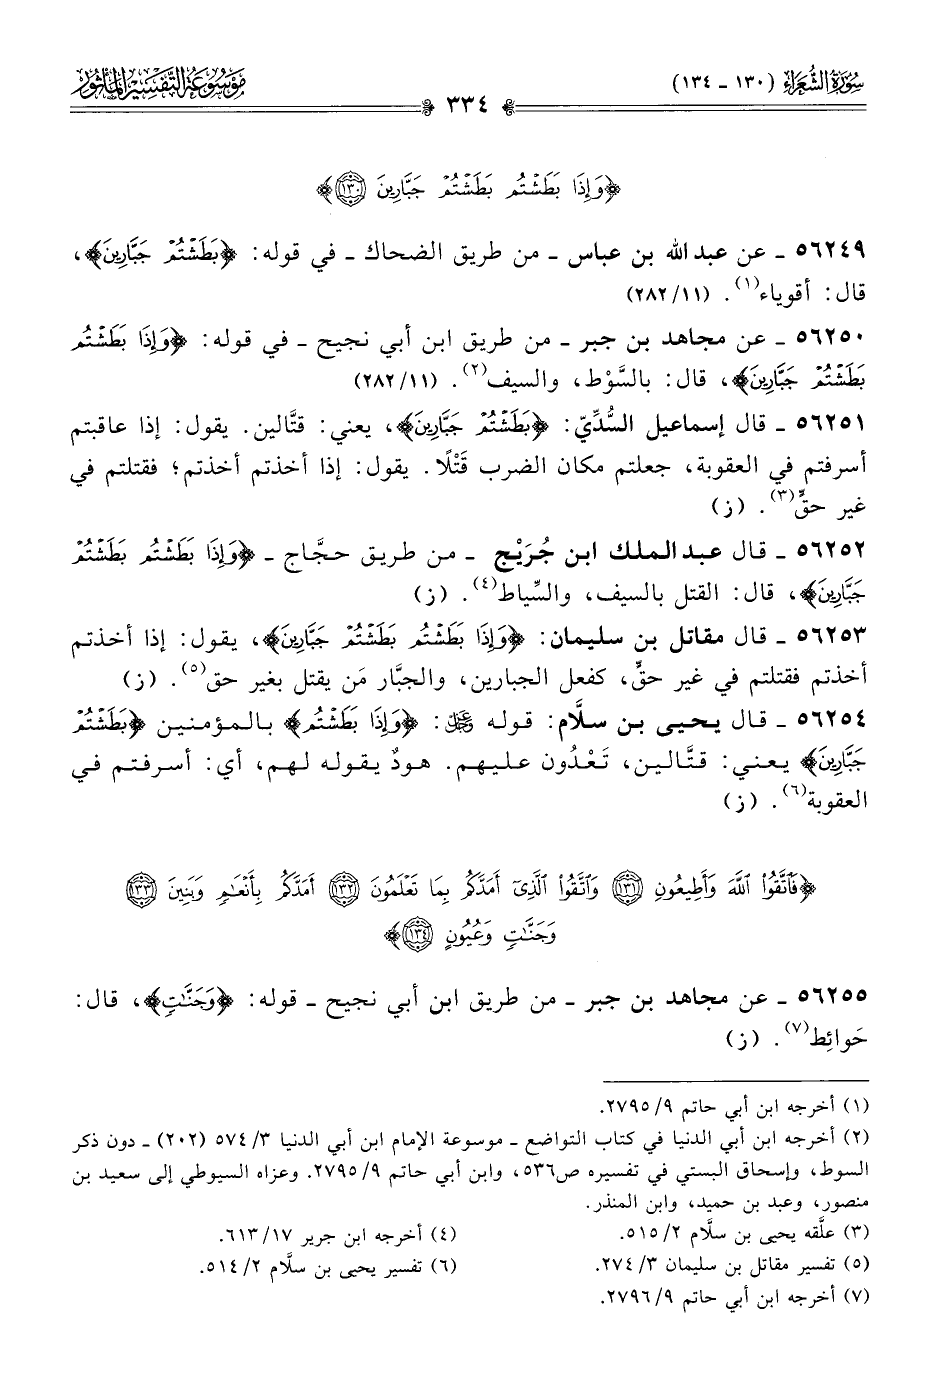 سُورَةُ الشُّعَرَاءِ (١٣٠ ـ ١٣٤)
٣٣٤
مَوْسُوعَةُ التَّفْسِيرِ المَأْثُورِ
﴿وَإِذَا بَطَشْتُم بَطَشْتُمْ جَبَّارِينَ ١٣٠﴾
٥٦٢٤٩ ـ عن عبد الله بن عباس ـ من طريق الضحاك ـ في قوله: ﴿بَطَشْتُمْ جَبَّارِينَ﴾،
قال: أقوياء(١). (٢٨٢/١١)
٥٦٢٥٠ ـ عن مجاهد بن جبر ـ من طريق ابن أبي نجيح ـ في قوله: ﴿وَإِذَا بَطَشْتُم
بَطَشْتُمْ جَبَّارِينَ﴾، قال: بالسَّوْط، والسيف(٢). (٢٨٢/١١)
٥٦٢٥١ ـ قال إسماعيل السُّدِّيّ: ﴿بَطَشْتُمْ جَبَّارِينَ﴾، يعني: قتَّالين. يقول: إذا عاقبتم
أسرفتم في العقوبة، جعلتم مكان الضرب قَتْلًا. يقول: إذا أخذتم أخذتم؛ فقتلتم في
غير حقٍّ(٣). (ز)
٥٦٢٥٢ ـ قال عبد الملك ابن جُرَيْج ـ من طريق حجَّاج ـ ﴿وَإِذَا بَطَشْتُم بَطَشْتُمْ
جَبَّارِينَ﴾، قال: القتل بالسيف، والسِّياط(٤). (ز)
٥٦٢٥٣ ـ قال مقاتل بن سليمان: ﴿وَإِذَا بَطَشْتُم بَطَشْتُمْ جَبَّارِينَ﴾، يقول: إذا أخذتم
أخذتم فقتلتم في غير حقٍّ، كفعل الجبارين، والجبَّار مَن يقتل بغير حق(٥). (ز)
٥٦٢٥٤ ـ قال يحيى بن سلَّام: قوله ﷿: ﴿وَإِذَا بَطَشْتُم﴾ بالمؤمنين ﴿بَطَشْتُمْ
جَبَّارِينَ﴾ يعني: قتَّالين، تَعْدُون عليهم. هودٌ يقوله لهم، أي: أسرفتم في
العقوبة(٦). (ز)
﴿فَاتَّقُوا اللَّهَ وَأَطِيعُونِ ١٣١ وَاتَّقُوا الَّذِي أَمَدَّكُم بِمَا تَعْلَمُونَ ١٣٢ أَمَدَّكُم بِأَنْعَٰمٍ وَبَنِينَ ١٣٣
وَجَنَّٰتٍ وَعُيُونٍ ١٣٤﴾
٥٦٢٥٥ ـ عن مجاهد بن جبر ـ من طريق ابن أبي نجيح ـ قوله: ﴿وَجَنَّٰتٍ﴾، قال:
حَوائِط(٧). (ز)
(١) أخرجه ابن أبي حاتم ٩/ ٢٧٩٥.
(٢) أخرجه ابن أبي الدنيا في كتاب التواضع ـ موسوعة الإمام ابن أبي الدنيا ٣/ ٥٧٤ (٢٠٢) ـ دون ذكر
السوط، وإسحاق البستي في تفسيره ص٥٣٦، وابن أبي حاتم ٩/ ٢٧٩٥. وعزاه السيوطي إلى سعيد بن
منصور، وعبد بن حميد، وابن المنذر.
(٣) علَّقه يحيى بن سلَّام ٢/ ٥١٥.
(٤) أخرجه ابن جرير ١٧/ ٦١٣.
(٥) تفسير مقاتل بن سليمان ٣/ ٢٧٤.
(٦) تفسير يحيى بن سلَّام ٢/ ٥١٤.
(٧) أخرجه ابن أبي حاتم ٩/ ٢٧٩٦.